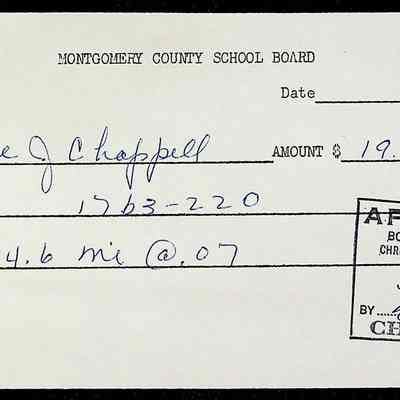 MONTGOMERY COUNTY SCHOOL BOARD
Date
e J Chappell AMOUNT $ 19.
1763-220
4.6 mi @ .07
AP
BO
CHR
BY
CH